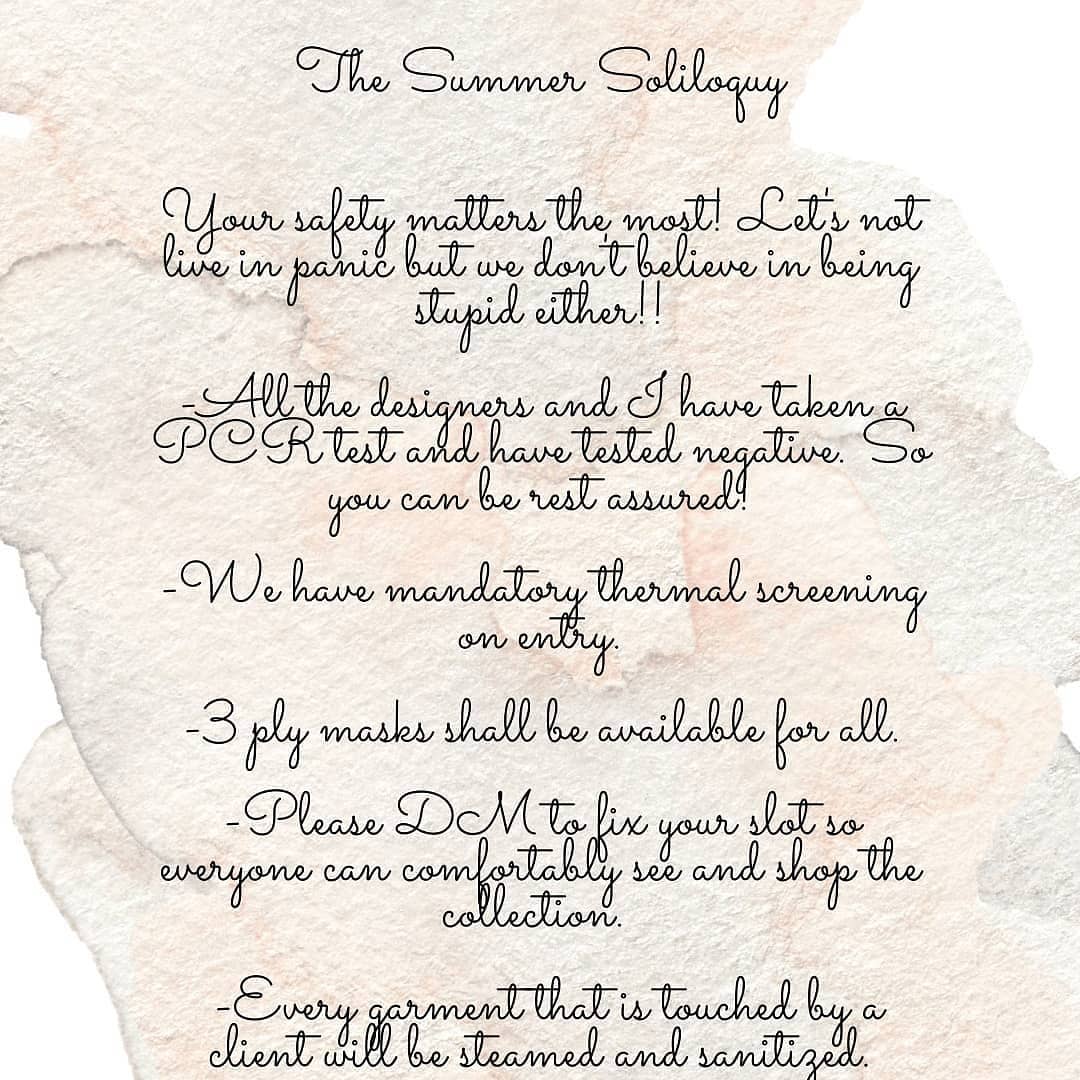 The Summer Soliloquy
Your safety matters the most! Let's not
live in panic but we don't believe in being
stupid either!!
-All the designers and I have taken a
PCR test and have tested negative. So
you can be rest assured!
-We have mandatory thermal screening
on entry.
-3 ply masks shall be available for all.
-Please DM to fix your slot so
everyone can comfortably see and shop the
collection.
-Every garment that is touched by a
client will be steamed and sanitized.